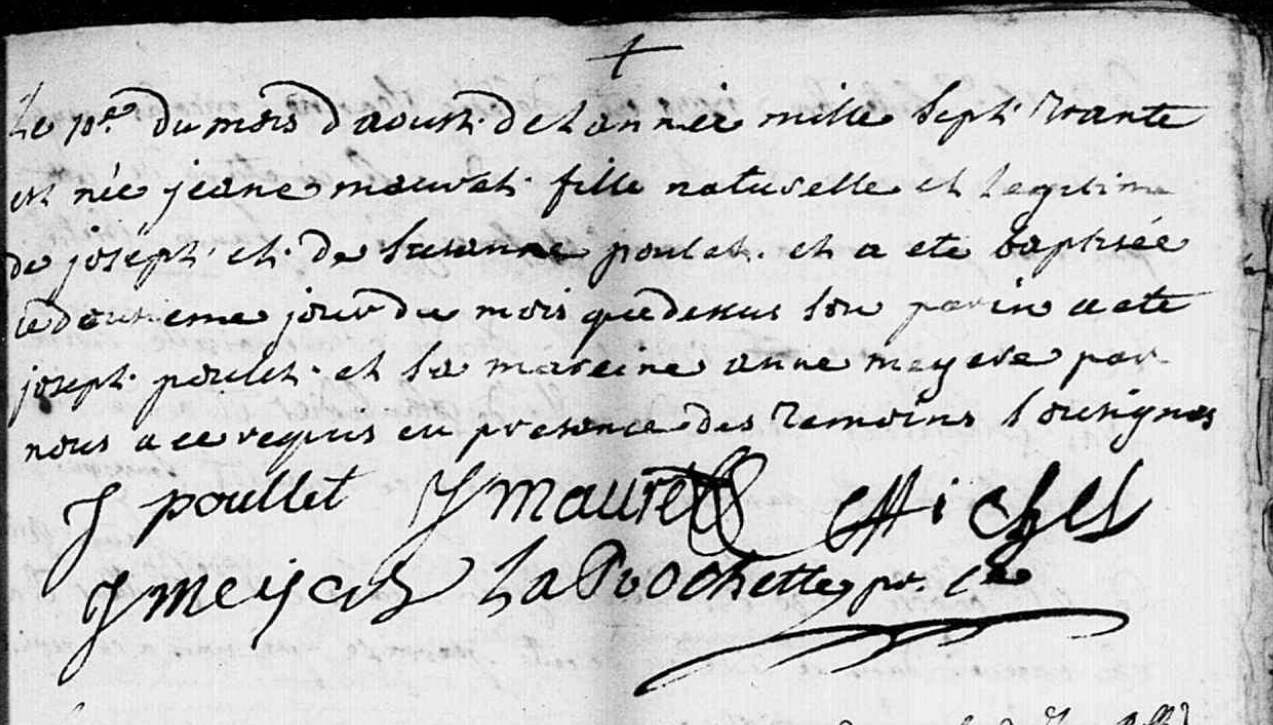 +
Le pr du mois d'aoust de lannée mille sept trante
est née jeane mauret fille naturelle et legitime
de joseph et de susanne poulet et a ete baptisée
le dousieme jour du mois que dessus son parin a ete
joseph poulet et la mareine anne meyere par
nous a ce requis en presence des temoins sousignes
J poullet J mauret Michel
J meyer LaRochette